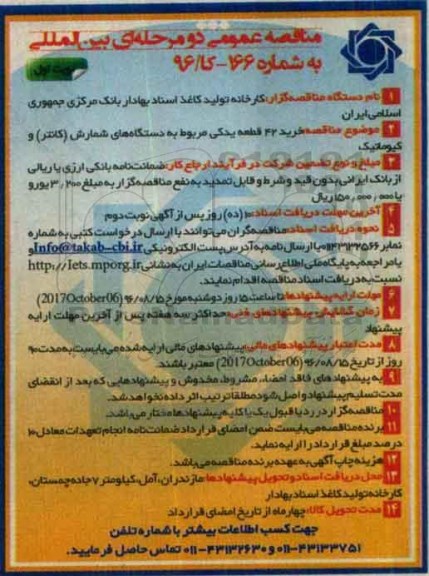 مناقصه عمومی دو مرحله‌ای بین‌المللی
به شماره ۱۶۶-کا/۹۶
نوبت اول
1 نام دستگاه مناقصه‌گزار: کارخانه تولید کاغذ اسناد بهادار بانک مرکزی جمهوری
اسلامی ایران
2 موضوع مناقصه: خرید ۴۲ قطعه یدکی مربوط به دستگاه‌های شمارش (کانتر) و
کیوماتیک
3 مبلغ و نوع تضمین شرکت در فرآیند ارجاع کار: ضمانت‌نامه بانکی ارزی یا ریالی
از بانک ایرانی بدون قید و شرط و قابل تمدید به نفع مناقصه‌گزار به مبلغ ۳,۲۰۰ یورو
یا ۱۵۰,۰۰۰,۰۰۰ ریال
4 آخرین مهلت دریافت اسناد: ۱۰ (ده) روز پس از آگهی نوبت دوم
5 نحوه دریافت اسناد: مناقصه‌گران می‌توانند با ارسال درخواست کتبی به شماره
نمابر ۰۱۱۴۳۱۳۲۵۶۶ با ارسال نامه به آدرس پست الکترونیکی Info@takab-cbi.ir و
یا مراجعه به پایگاه ملی اطلاع‌رسانی مناقصات ایران به نشانی http://Iets.mporg.ir
نسبت به دریافت اسناد مناقصه اقدام نمایند.
6 مهلت ارایه پیشنهادها: تا ساعت ۱۵ روز دوشنبه مورخ ۹۶/۰۸/۱۵ (2017October06)
7 زمان گشایش پیشنهادهای فنی: حداکثر سه هفته پس از آخرین مهلت ارایه
پیشنهاد
8 مدت اعتبار پیشنهادهای مالی: پیشنهادهای مالی ارایه شده می‌بایست به مدت ۹۰
روز از تاریخ ۹۶/۰۸/۱۵ (2017October06) معتبر باشند.
9 به پیشنهادهای فاقد امضا، مشروط، مخدوش و پیشنهادهایی که بعد از انقضای
مدت تسلیم پیشنهاد واصل شود مطلقا ترتیب اثر داده نخواهد شد.
10 مناقصه‌گزار در رد یا قبول یک یا کلیه پیشنهادها مختار می‌باشد.
11 برنده مناقصه می‌بایست ضمن امضای قرارداد ضمانت‌نامه انجام تعهدات معادل ۱۰
درصد مبلغ قرارداد را ارایه نماید.
12 هزینه چاپ آگهی به عهده برنده مناقصه می‌باشد.
13 محل دریافت اسناد و تحویل پیشنهادها: مازندران، آمل، کیلومتر ۷ جاده چمستان،
کارخانه تولید کاغذ اسناد بهادار
14 مدت تحویل کالا: چهار ماه از تاریخ امضای قرارداد
جهت کسب اطلاعات بیشتر با شماره تلفن
۰۱۱-۴۳۱۳۳۷۵۱ و ۰۱۱-۴۳۱۳۲۶۳۰ تماس حاصل فرمایید.